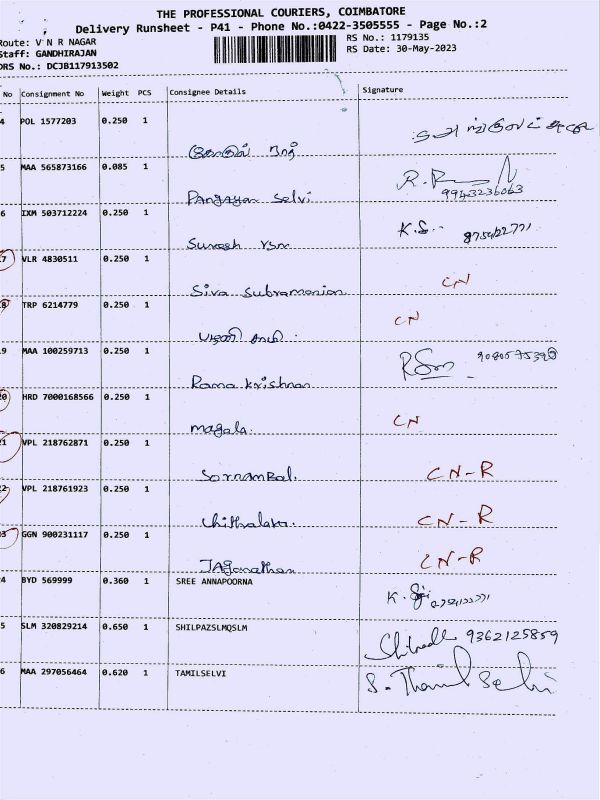 THE PROFESSIONAL COURIERS, COIMBATORE
Delivery Runsheet - P41 - Phone No.:0422-3505555 - Page No.:2
Route: V N R NAGAR
RS No.: 1179135
Staff: GANDHIRAJAN
RS Date: 30-May-2023
DRS No.: DCJB117913502
No Consignment No Weight PCS Consignee Details Signature
4 POL 1577203 0.250 1
5 MAA 565873166 0.085 1
R. 9943236063
Pangayan Selvi
6 IXM 503712224 0.250 1 K.S..
Suresh
7 VLR 4830511 0.250 1
Siva Subramanian CN
8 TRP 6214779 0.250 1 CN
பழனி சாமி .
9 MAA 100259713 0.250 1
Rama Krishnan
20 HRD 7000168566 0.250 1 CN
magala.
21 VPL 218762871 0.250 1
Sornambal. CN-R
22 VPL 218761923 0.250 1
CN-R
23 GGN 900231117 0.250 1
Jaganathan CN-R
4 BYD 569999 0.360 1 SREE ANNAPOORNA
5 SLM 320829214 0.650 1 SHILPAZSLMQSLM 9362125859
6 MAA 297056464 0.620 1 TAMILSELVI S. Thamil Selvi